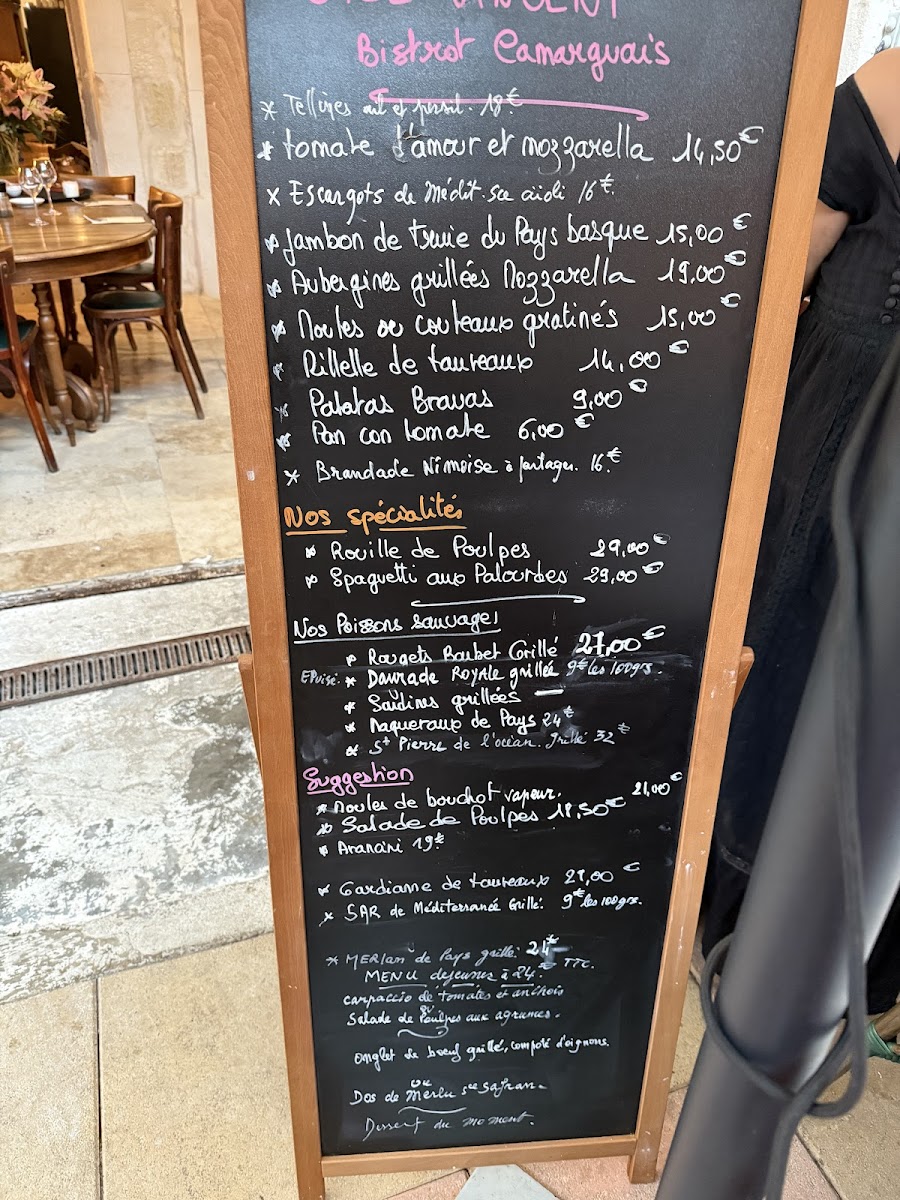 VINCENT
Bistrot Camarguais
* Tellines ail et persil. 18€
* tomate d'amour et mozzarella 14,50€
x Escargots de Médit. sce aïoli 16€.
* Jambon de truie du Pays basque 15,00€
* Aubergines grillées Mozzarella 19.00€
* Moules ou couteaux gratinés 15,00€
* Rillette de taureaux 14,00€
* Patatas Bravas 9,00€
* Pan con tomate 6,00€
* Brandade Nîmoise à partager. 16€
Nos spécialités
* Rouille de Poulpes 29,00€
* Spaghetti aux Palourdes 29,00€
Nos Poissons sauvages
* Rougets Barbet Grillé 27,00€
Epuisé. * Daurade Royale grillée 9€ les 100grs.
* Sardines grillées
* Maqueraux de Pays 24€
* St Pierre de l'océan. grillé 32€
Suggestion
* Moules de bouchot vapeur. 21,00€
* Salade de Poulpes 18,50€
* Arancini 19€
* Gardianne de taureaux 27,00€
* SAR de Méditerranée Grillé. 9€ les 100grs.
* MERlan de Pays grillé. 24€
MENU dejeuner à 24.€ TTC.
carpaccio de tomates et anchois
ou
Salade de Poulpes aux agrumes.
Onglet de boeuf grillé, compoté d'oignons.
ou
Dos de Merlu sce safran.
Dessert du moment.